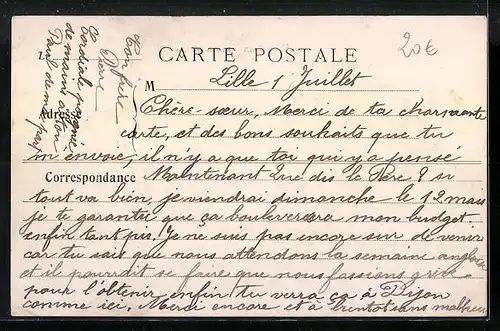 CARTE POSTALE
20€
M
Lille 1 Juillet
Adresse
Chère-sœur, Merci de ta charmante
carte, et des bons souhaits que tu
m'envoie, il n'y a que toi qui y a pensé
Correspondance
Maintenant que dis le Père? si
tout va bien, je viendrai dimanche le 12 mais
je te garantie que ça bouleversera mon budget
enfin tant pis! Je ne suis pas encore sur de venir
car tu sais que nous attendons la semaine anglaise
et il pourrait se faire que nous fassions grève
pour l'obtenir, enfin tu verra ça à Dijon
comme ici. Merci encore et à bientôt sans malheur
Ton frère
Pierre
Cordiale poignée
de main à ton
Paul de ma part